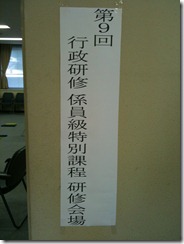 第9回
行政研修 係員級特別課程 研修会場